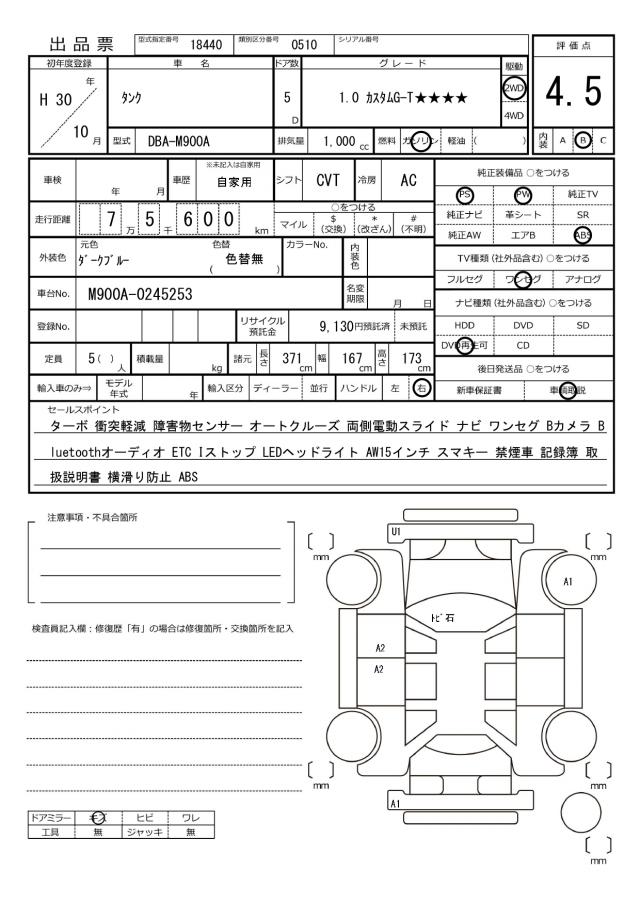 出品票 型式指定番号 18440 類別区分番号 0510 シリアル番号
評価点
4.5
内装 A B C
初年度登録 車名 ドア数 グレード 駆動
H 30 年 / 10 月
タンク 5 D 1.0 カスタムG-T★★★★ 2WD
4WD
型式 DBA-M900A 排気量 1,000 cc 燃料 ガソリン 軽油 ( )
車検 年 月 車歴 ※未記入は自家用 自家用 シフト CVT 冷房 AC
走行距離 7 5 6 0 0 万 千 km
○をつける
マイル $ (交換) * (改ざん) # (不明)
外装色 元色 ダークブルー 色替 ( 色替無 ) カラーNo. 内装色
車台No. M900A-0245253 名変期限 月 日
登録No. リサイクル預託金 9,130円預託済 未預託
定員 5( ) 人 積載量 kg 諸元 長さ 371 cm 幅 167 cm 高さ 173 cm
輸入車のみ⇒ モデル年式 年 輸入区分 ディーラー 並行 ハンドル 左 右
純正装備品 ○をつける
PS PW 純正TV
純正ナビ 革シート SR
純正AW エアB ABS
TV種類(社外品含む) ○をつける
フルセグ ワンセグ アナログ
ナビ種類(社外品含む) ○をつける
HDD DVD SD
DVD再生可 CD
後日発送品 ○をつける
新車保証書 車輌取説
セールスポイント
ターボ 衝突軽減 障害物センサー オートクルーズ 両側電動スライド ナビ ワンセグ Bカメラ B
luetoothオーディオ ETC Iストップ LEDヘッドライト AW15インチ スマキー 禁煙車 記録簿 取
扱説明書 横滑り防止 ABS
注意事項・不具合箇所
検査員記入欄：修復歴「有」の場合は修復箇所・交換箇所を記入
U1
mm
mm
A1
トビ石
A2
A2
mm
mm
A1
mm
ドアミラー キズ ヒビ ワレ
工具 無 ジャッキ 無